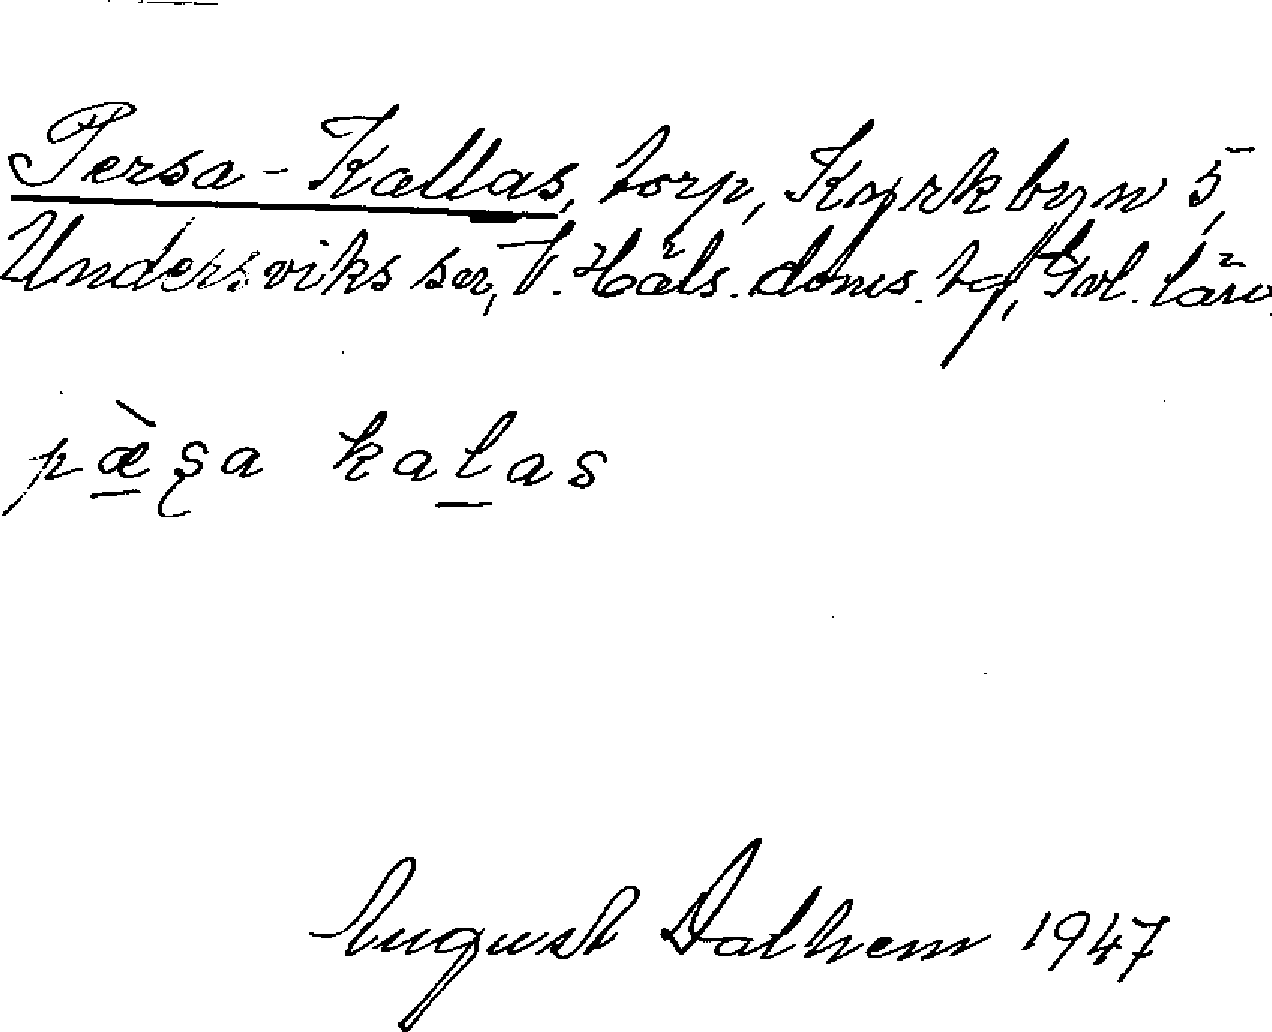 Persa-Kallas, torp, Kyrkbyn 5,
Undersviks sn, V. Häls. doms. tg, Gvl. län.
pæ̠̀ʂa kal̠as
August Dalhem 1947